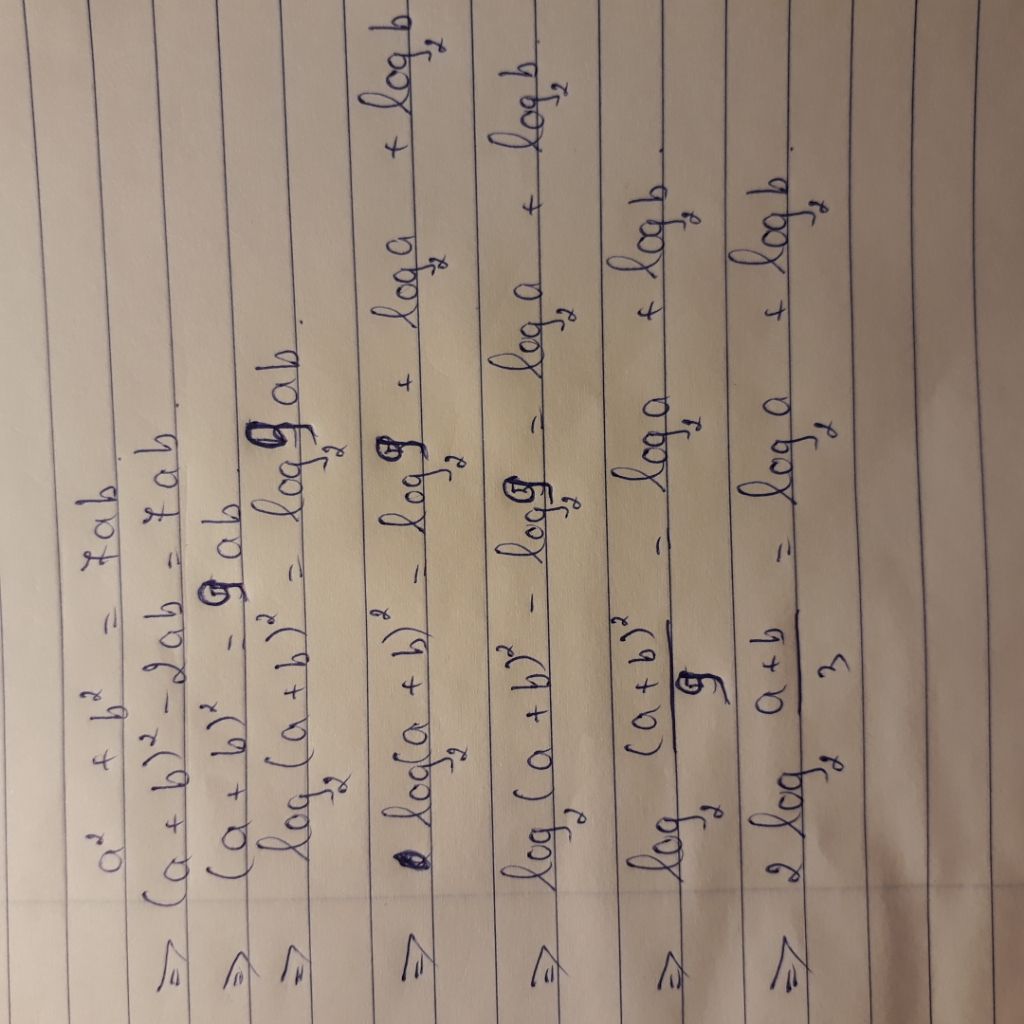 a² + b² = 7ab
⇒ (a + b)² - 2ab = 7ab.
⇒ (a + b)² = 9ab
⇒ log₂(a + b)² = log₂9ab.
⇒ log₂(a + b)² = log₂9 + log₂a + log₂b
⇒ log₂(a + b)² - log₂9 = log₂a + log₂b.
⇒ log₂ (a + b)²/9 = log₂a + log₂b.
⇒ 2 log₂ a + b/3 = log₂a + log₂b.